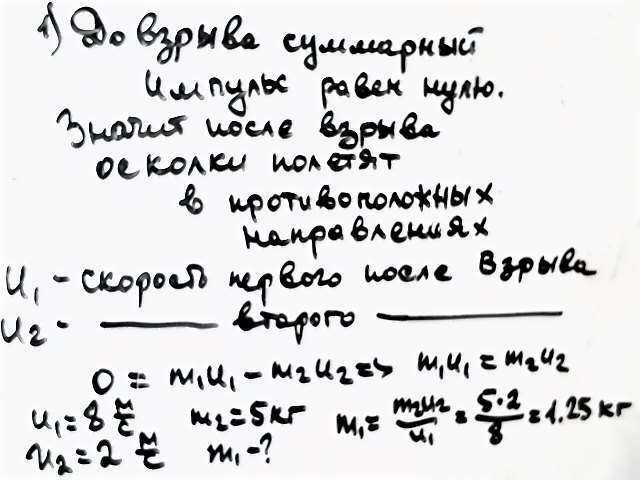 1) До взрыва суммарный
импульс равен нулю.
Значит после взрыва
осколки полетят
в противоположных
направлениях
u₁ - скорость первого после взрыва
u₂ - ——— второго ———
0 = m₁u₁ - m₂u₂ => m₁u₁ = m₂u₂
u₁ = 8 м/с m₂ = 5 кг m₁ = m₂u₂/u₁ = 5·2/8 = 1.25 кг
u₂ = 2 м/с m₁ - ?